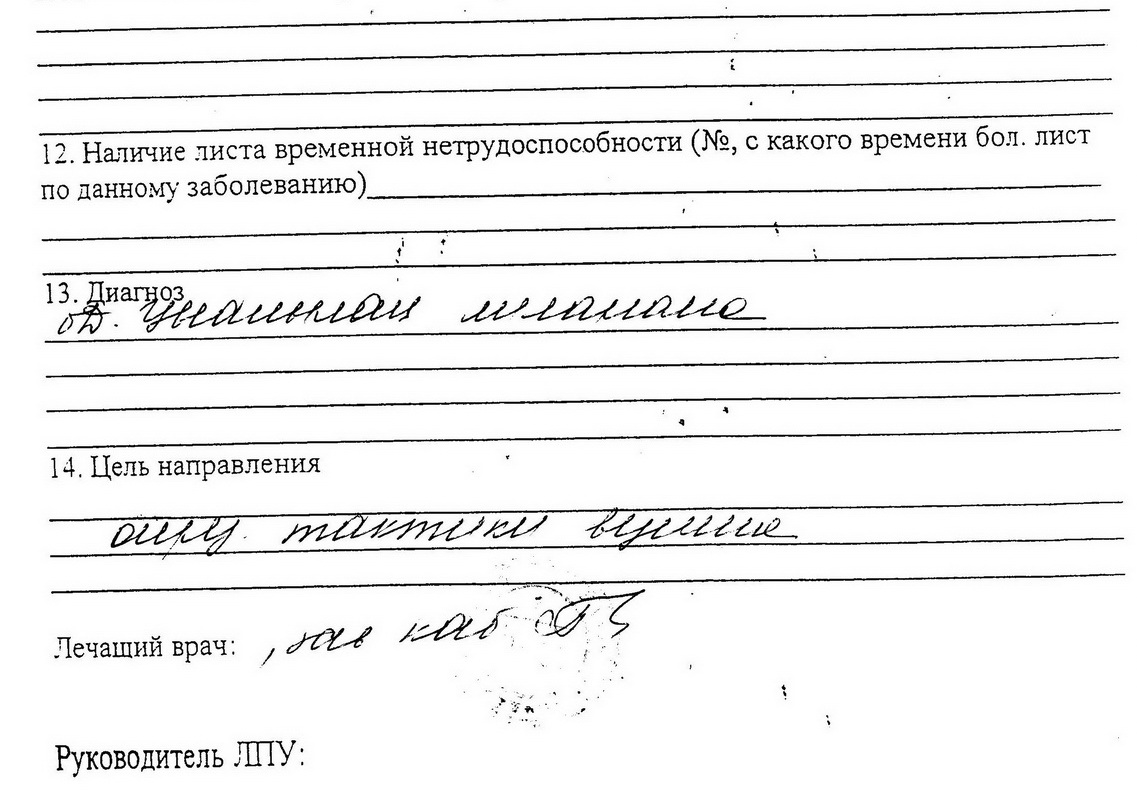 12. Наличие листа временной нетрудоспособности (№, с какого времени бол. лист
по данному заболеванию)
13. Диагноз
14. Цель направления
тактики
Лечащий врач: , зав каб
Руководитель ЛПУ: